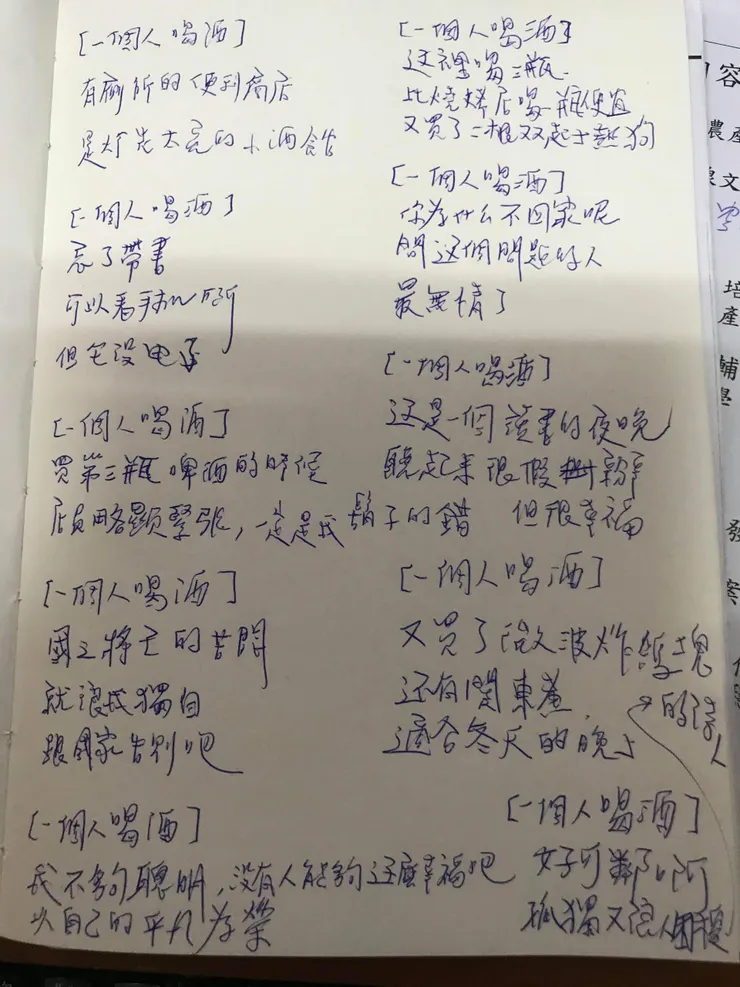 [一個人喝酒]
有廁所的便利商店
是燈光太亮的小酒館
[一個人喝酒]
忘了帶書
可以看手机啊
但它沒电了
[一個人喝酒]
買第三瓶啤酒的時候
店員略顯緊張，一定是我鬍子的錯
[一個人喝酒]
國之將亡的苦悶
就讓我獨自
跟國家告別吧
[一個人喝酒]
我不夠聰明，没有人能夠这麼幸福吧
以自己的平凡為榮
[一個人喝酒]
这裡喝三瓶
比燒烤店喝一瓶便宜
又買了二根双起士熱狗
[一個人喝酒]
你為什么不回家呢
問这個問題的人
最無情了
[一個人喝酒]
还是一個讀書的夜晚
聽起來很假
但很幸福
[一個人喝酒]
又買了微波炸雞塊
还有関東煮
適合冬天的晚上
的詩人
[一個人喝酒]
好可鄰啊
孤獨又很困擾